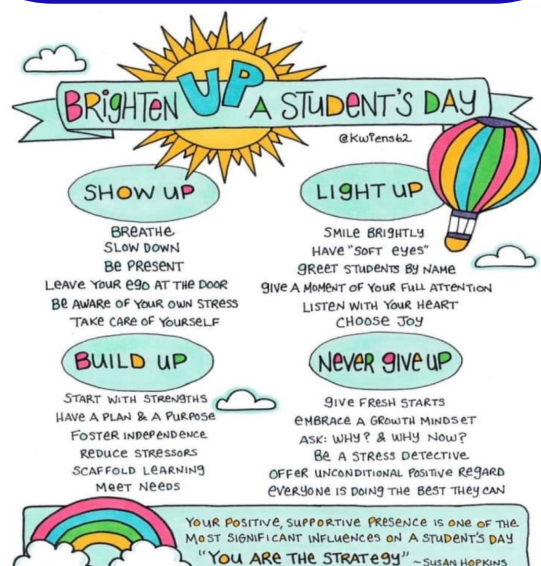 BRIGHTEN UP A STUDENT'S DAY
@kwiens62
SHOW UP
BREATHE
SLOW DOWN
BE PRESENT
LEAVE YOUR EGO AT THE DOOR
BE AWARE OF YOUR OWN STRESS
TAKE CARE OF YOURSELF
LIGHT UP
SMILE BRIGHTLY
HAVE "SOFT EYES"
GREET STUDENTS BY NAME
GIVE A MOMENT OF YOUR FULL ATTENTION
LISTEN WITH YOUR HEART
CHOOSE JOY
BUILD UP
START WITH STRENGTHS
HAVE A PLAN & A PURPOSE
FOSTER INDEPENDENCE
REDUCE STRESSORS
SCAFFOLD LEARNING
MEET NEEDS
NEVER GIVE UP
GIVE FRESH STARTS
EMBRACE A GROWTH MINDSET
ASK: WHY? & WHY NOW?
BE A STRESS DETECTIVE
OFFER UNCONDITIONAL POSITIVE REGARD
EVERYONE IS DOING THE BEST THEY CAN
YOUR POSITIVE, SUPPORTIVE PRESENCE IS ONE OF THE
MOST SIGNIFICANT INFLUENCES ON A STUDENT'S DAY
"YOU ARE THE STRATEGY" ~ SUSAN HOPKINS